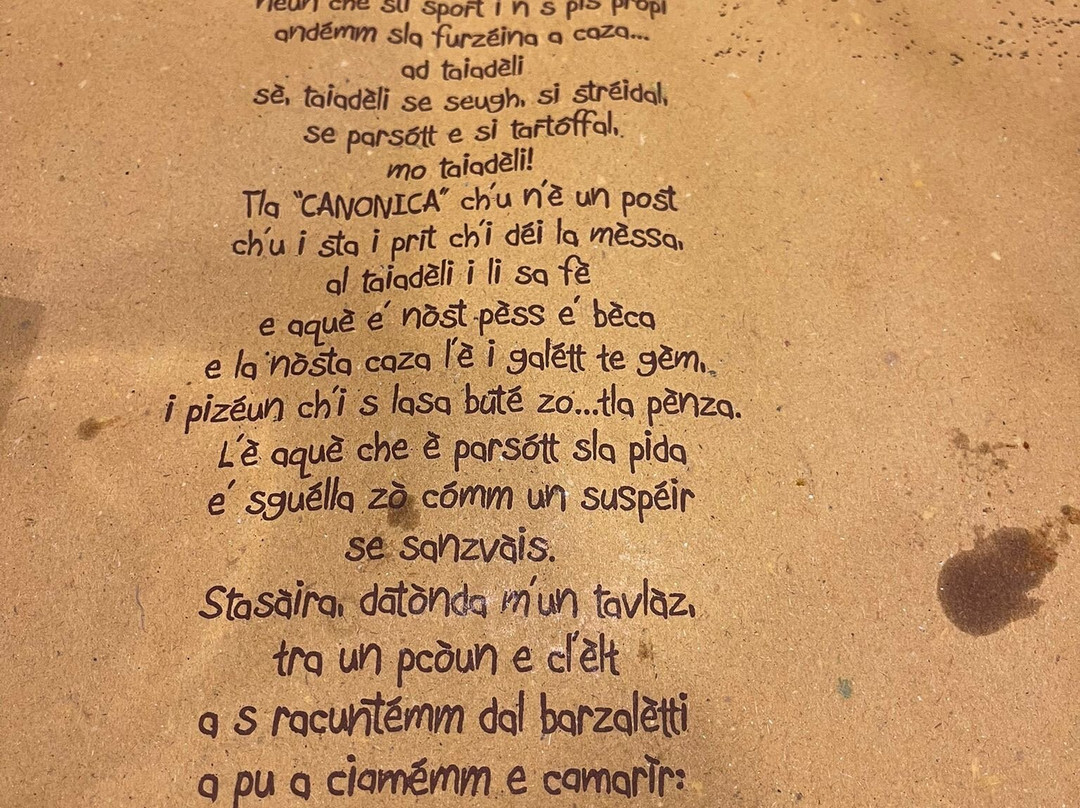 che su sport i n s pis propi
andémm sla furzéina a caza...
ad taiadèli
sè, taiadèli se seugh, si stréidal,
se parsótt e si tartóffal,
mo taiadèli!
Tla "CANONICA" ch'u n'è un post
ch'u i sta i prit ch'i déi la mèssa,
al taiadèli i li sa fè
e aquè e' nòst pèss e' bèca
e la nòsta caza l'è i galétt te gèm,
i pizéun ch'i s lasa buté zo...tla pènza.
L'è aquè che è parsótt sla pida
e' sguélla zò cómm un suspéir
se sanzvàis.
Stasàira, datònda m'un tavlàz,
tra un pcòun e cl'èlt
a s racuntémm dal barzalètti
a pu a ciamémm e camarìr: